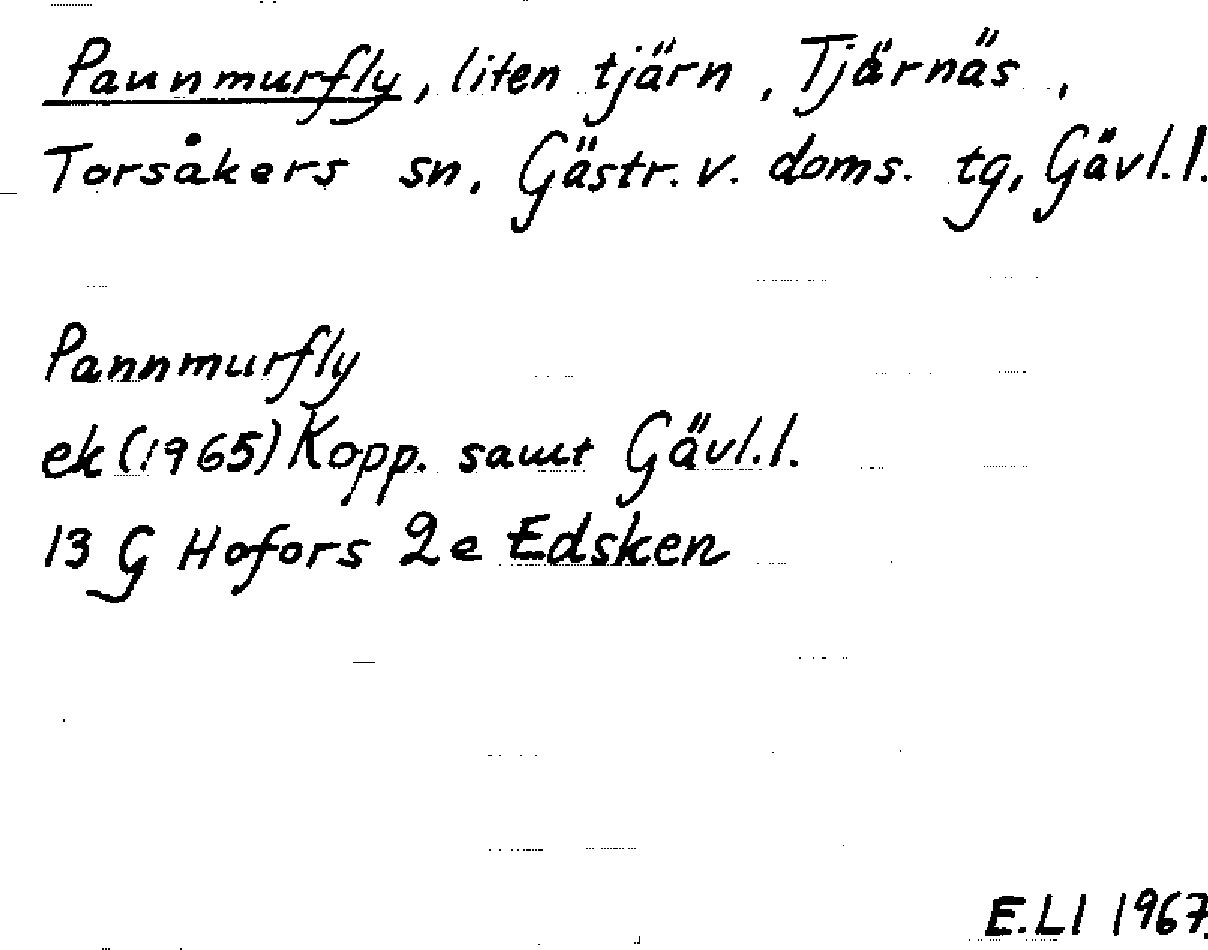 Pannmurfly, liten tjärn, Tjärnäs,
Torsåkers sn, Gästr. v. doms. tg, Gävl. l.
Pannmurfly
ek (1965) Kopp. samt Gävl. l.
13 G Hofors 2e Edsken
E. LI 1967.